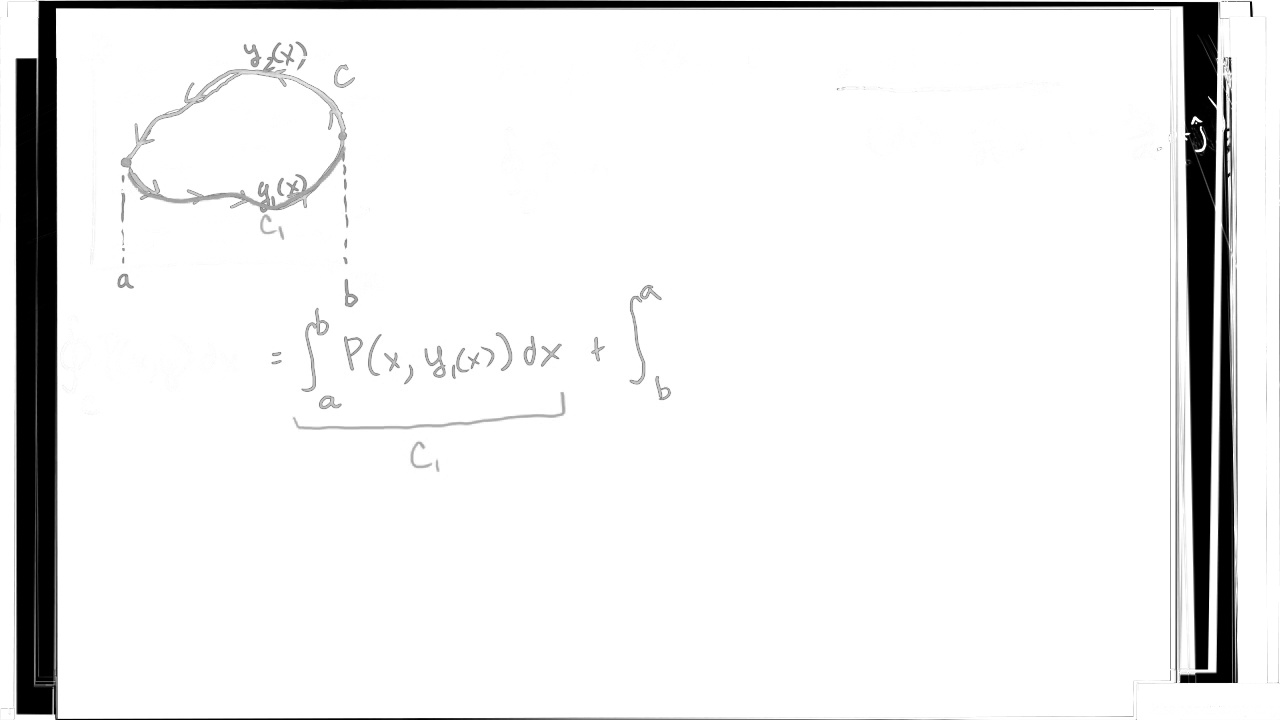 y₂(x)
C
y₁(x)
C₁
a
b
= ∫ₐᵇ P(x, y₁(x)) dx + ∫_b^a
C₁
ĵ